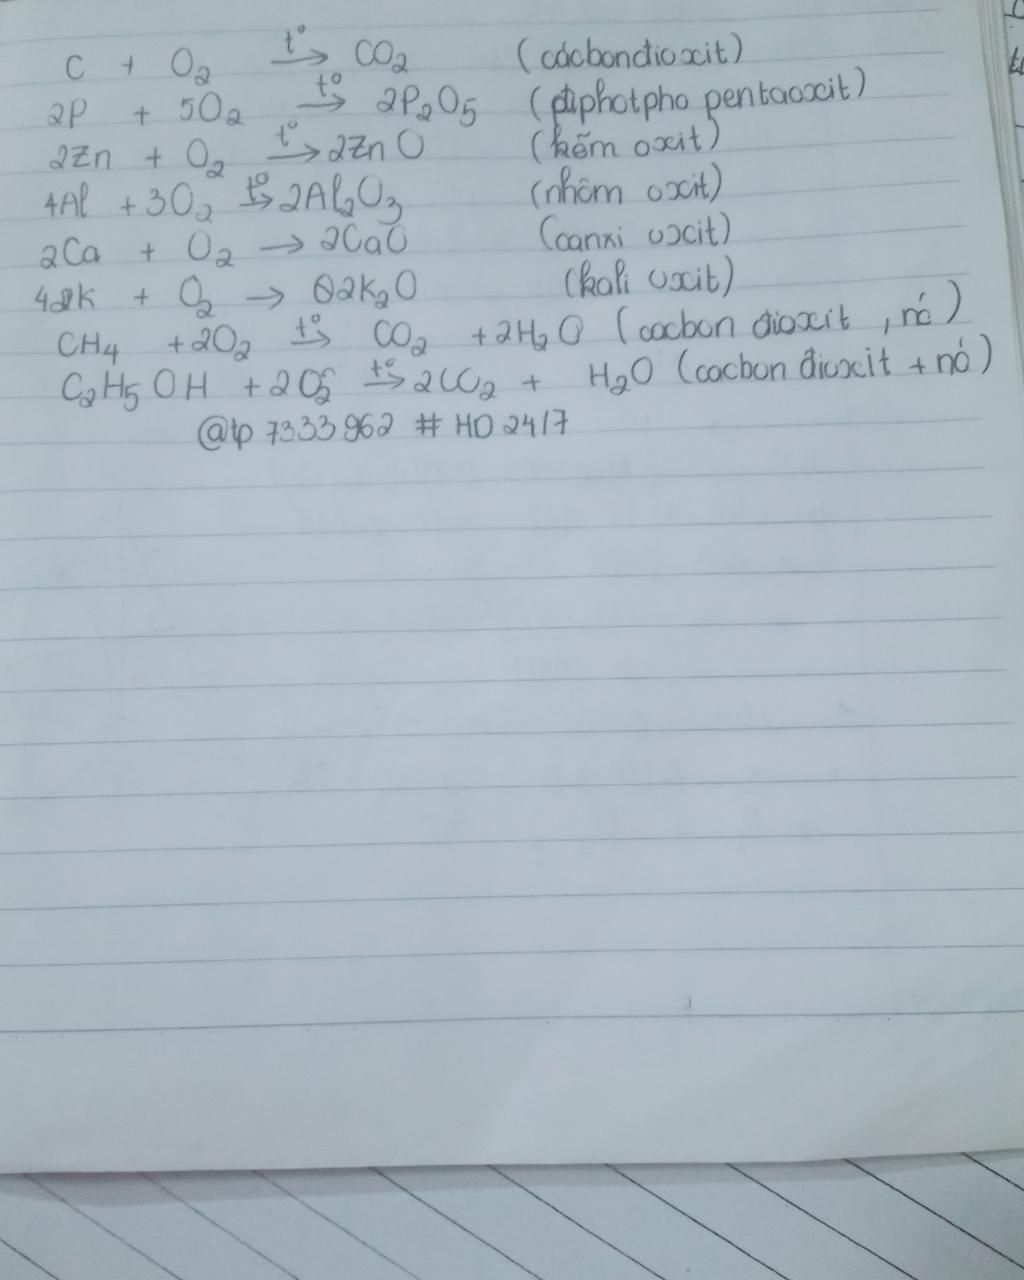 C + O2 t° → CO2 (cácbondioxit)
2P + 5O2 t° → 2P2O5 (điphotpho pentaoxit)
2Zn + O2 t° → 2ZnO (kẽm oxit)
4Al + 3O2 t° → 2Al2O3 (nhôm oxit)
2Ca + O2 → 2CaO (canxi oxit)
4K + O2 → 2K2O (kali oxit)
CH4 + 2O2 t° → CO2 + 2H2O (cacbon đioxit , nó)
C2H5OH + 2O2 t° → 2CO2 + H2O (cacbon đioxit + nó)
@tp 7333962 # HD 24/7